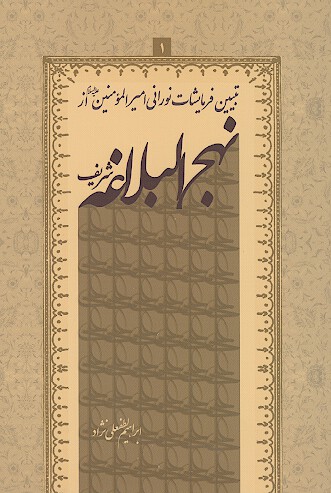 ۱
تبیین فرمایشات نورانی امیرالمؤمنین علیه‌السلام از
نهج البلاغه شریف
ابراهیم لطفعلی نژاد